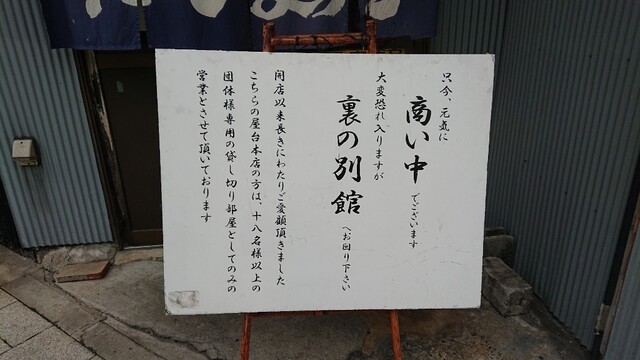 只今、元気に
商い中
でございます
大変恐れ入りますが
裏の別館
へお回り下さい
開店以来長きにわたりご愛顧頂きました
こちらの屋台本店の方は、十八名様以上の
団体様専用の貸し切り部屋としてのみの
営業とさせて頂いております